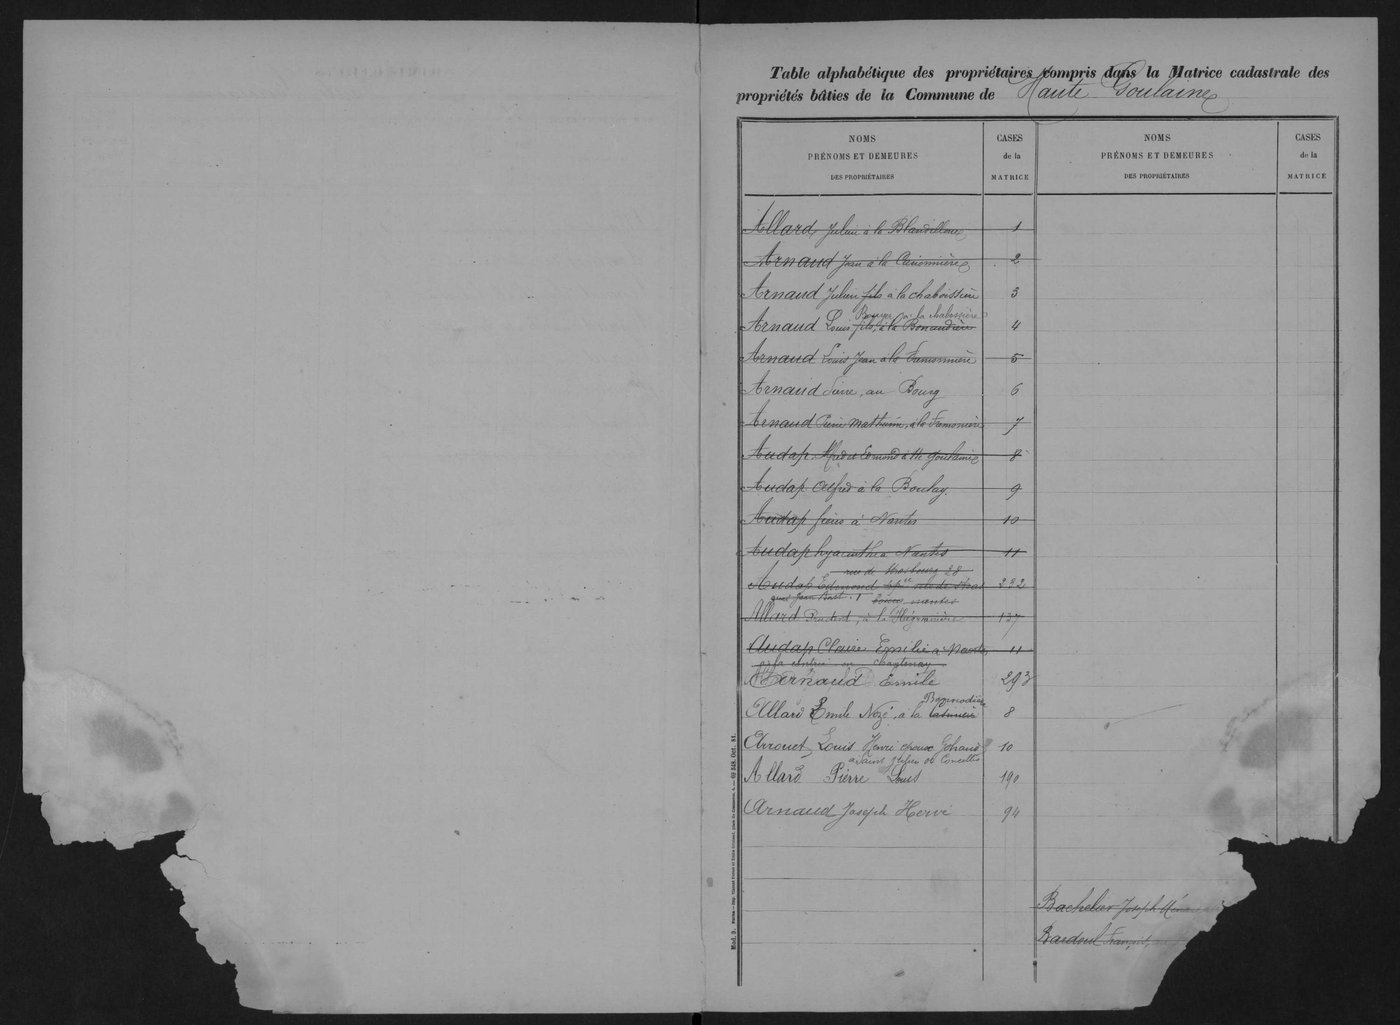 Table alphabétique des propriétaires compris dans la Matrice cadastrale des
propriétés bâties de la Commune de Haute Goulaine
NOMS
PRÉNOMS ET DEMEURES
DES PROPRIÉTAIRES
CASES
de la
MATRICE
NOMS
PRÉNOMS ET DEMEURES
DES PROPRIÉTAIRES
CASES
de la
MATRICE
Allard Julien à la 1
Arnaud Jean à la 2
Arnaud Julien fils à la chaboissière 3
Bouyer à la chaboissière
Arnaud Louis fils, à la Bonaudière 4
Arnaud Louis Jean à la 5
Arnaud Pierre, au Bourg 6
Arnaud Pierre Mathurin, à la 7
Audap Alfred et Edmond à Hte Goulaine 8
Audap Alfred à la Boulay 9
Audap frères à Nantes 10
Audap hyacinthe à Nantes 11
rue de Strasbourg 28
Audap Edmond rue de 232
quai Jean Bart. 1 nantes
Allard Prudent, à la 137
Audap Claire Emilie à Nantes 11
à la entrée en Chantenay
Bernaud Emile 293
Allard Emile Nozé, à la 8
Arrouet Louis Henri époux Gohaud 10
à Saint Julien de Concelles
Allard Pierre Louis 190
Arnaud Joseph Hervé 94
Bachelier Joseph
Bardoul François,